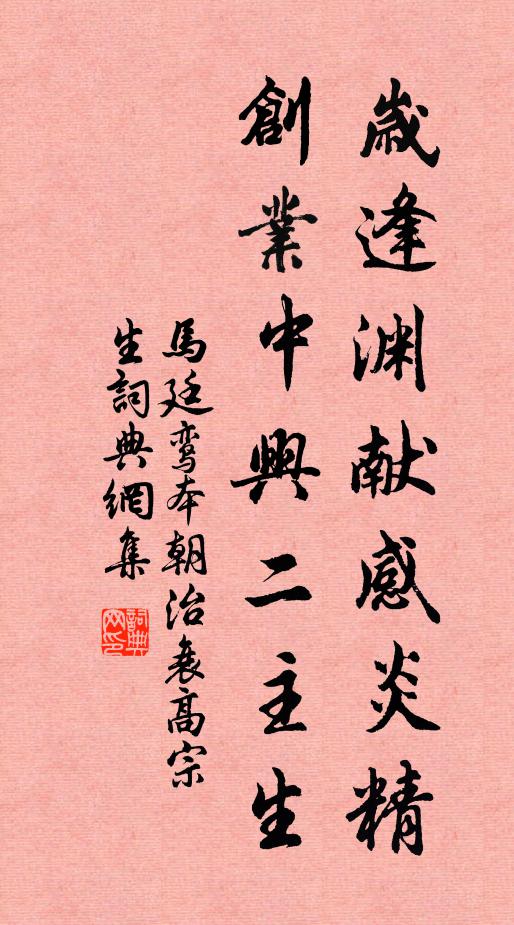 歲逢渊献感炎精
創業中興二主生
馬廷鸾本朝治衰高宗
生詞典網集
詞典网印